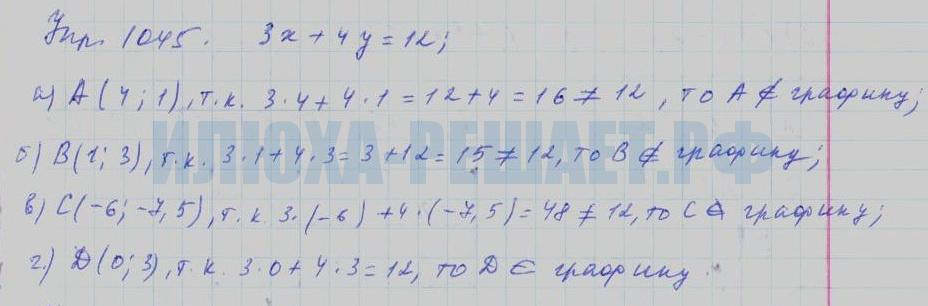 Упр. 1045. 3x + 4y = 12;
а) A(4; 1), т.к. 3·4 + 4·1 = 12 + 4 = 16 ≠ 12, то A ∉ графику;
ИЛЮХА-РЕШАЕТ.РФ
б) B(1; 3), т.к. 3·1 + 4·3 = 3 + 12 = 15 ≠ 12, то B ∉ графику;
в) C(-6; -7,5), т.к. 3·(-6) + 4·(-7,5) = 48 ≠ 12, то C графику;
г) D(0; 3), т.к. 3·0 + 4·3 = 12, то D ∈ графику.